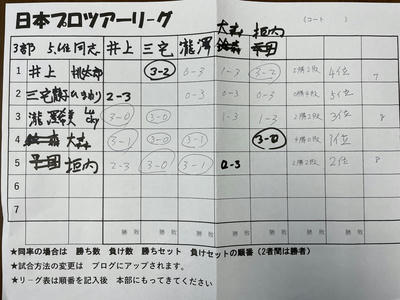 日本プロツアーリーグ (コート )
3部 5位同志 井上 三宅 瀧澤 大森 垣内
1 井上 桃太郎 3-2 0-3 1-3 3-2 2勝2敗 4位 7
2 三宅 ひまわり 2-3 0-3 0-3 0-3 0勝4敗 5位
3 瀧澤 Lucky 3-0 3-0 1-3 1-3 2勝2敗 3位 8
4 大森 3-1 3-0 3-1 3-0 4勝0敗 1位
5 垣内 2-3 3-0 3-1 0-3 2勝2敗 2位 8
勝 敗 勝 敗 勝 敗 勝 敗 勝 敗
★同率の場合は 勝ち数 負け数 勝ちセット 負けセットの順番(2者間は勝者)
★試合方法の変更は ブログにアップされます。
★リーグ表は順番を記入後 本部にもってきてください